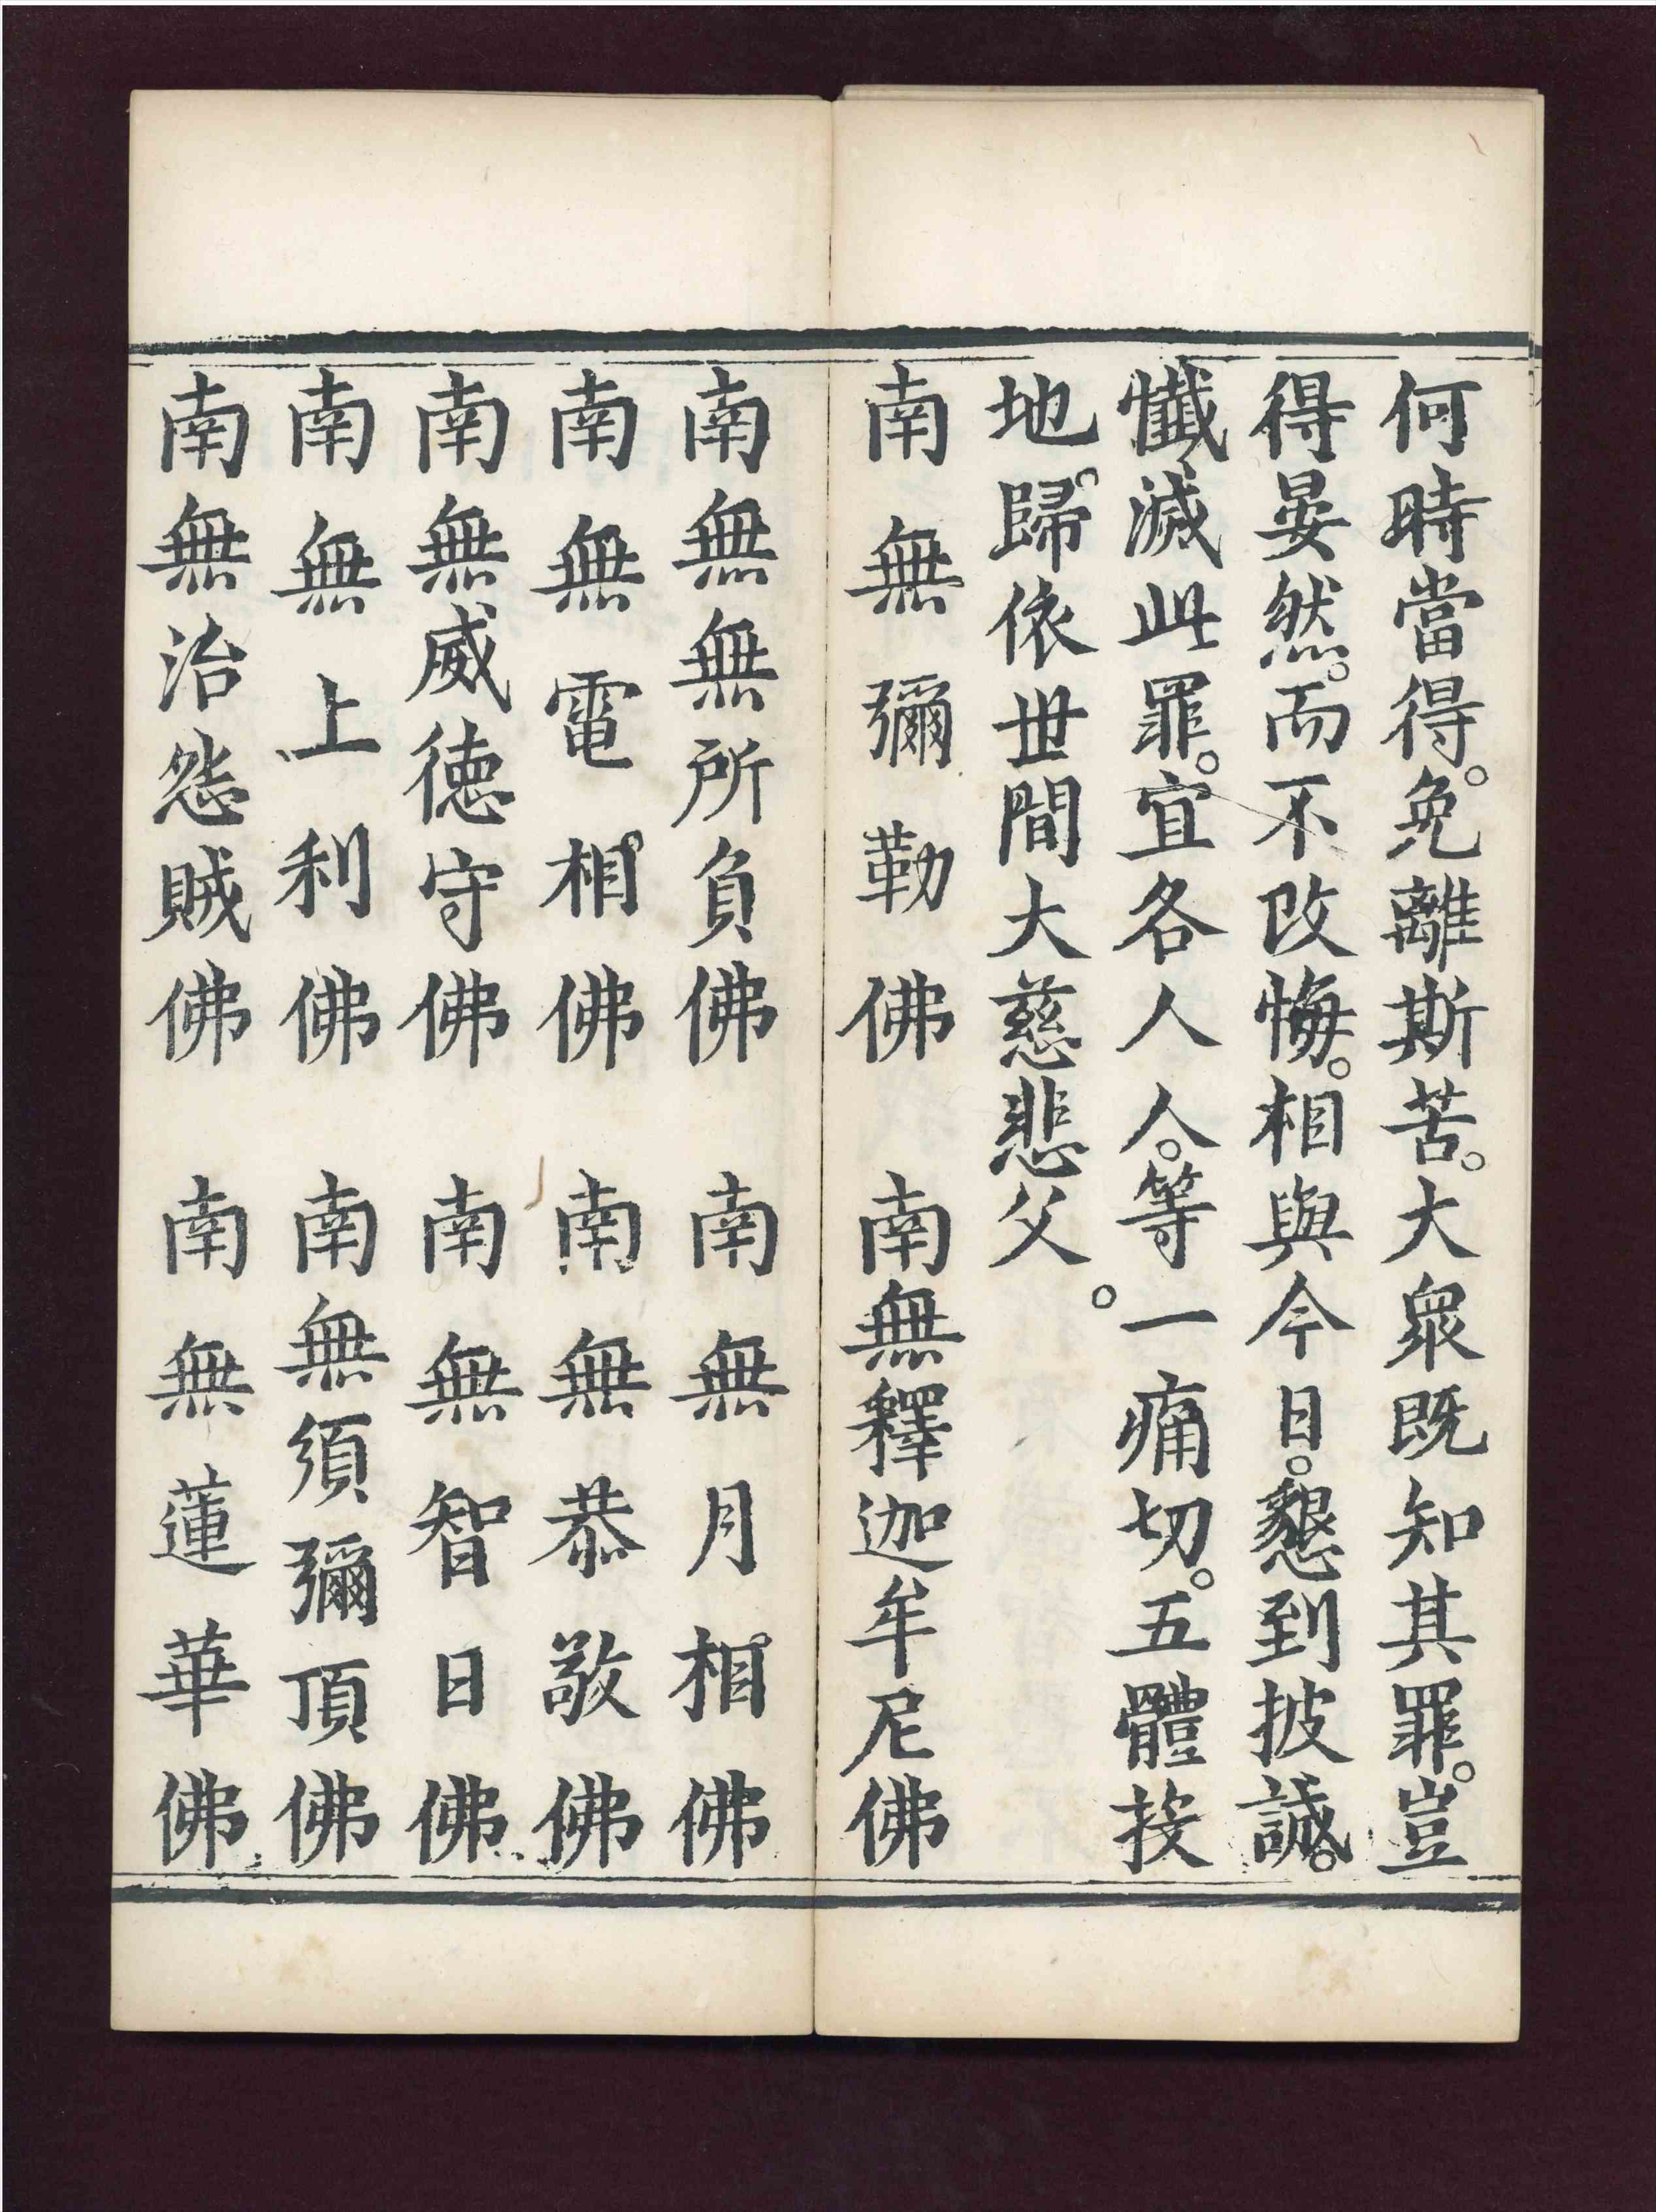 何時當得。免離斯苦。大衆既知其罪。豈
得晏然。而不改悔。相與今日。懇到披誠。
懺滅此罪。宜各人人。等一痛切。五體投
地。歸依世間大慈悲父。
南無彌勒佛 南無釋迦牟尼佛
南無無所負佛 南無月相佛
南無電相佛 南無恭敬佛
南無威德守佛 南無智日佛
南無上利佛 南無須彌頂佛
南無治怨賊佛 南無蓮華佛